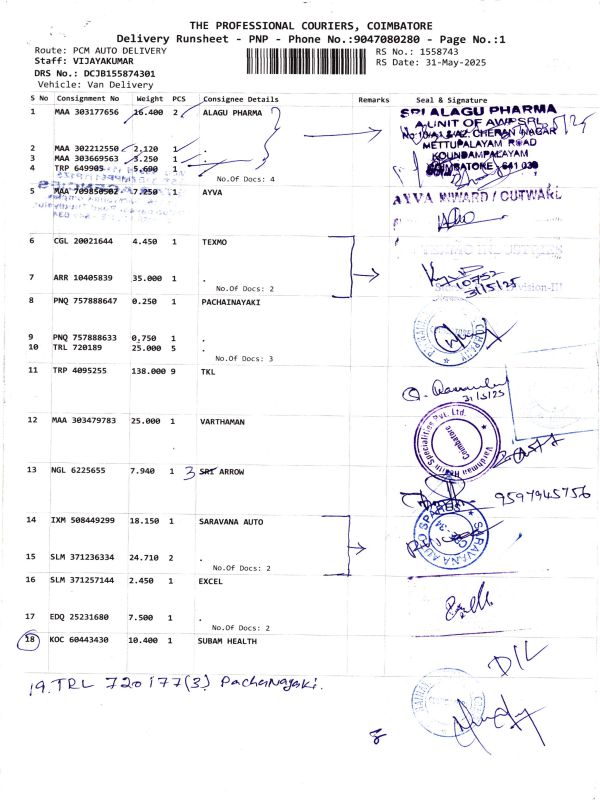 THE PROFESSIONAL COURIERS, COIMBATORE
Delivery Runsheet - PNP - Phone No.:9047080280 - Page No.:1
Route: PCM AUTO DELIVERY
Staff: VIJAYAKUMAR
DRS No.: DCJB155874301
Vehicle: Van Delivery
RS No.: 1558743
RS Date: 31-May-2025
S No Consignment No Weight PCS Consignee Details Remarks Seal & Signature
1 MAA 303177656 16.400 2 ALAGU PHARMA
SRI ALAGU PHARMA
METTUPALAYAM ROAD
KOUNDAMPALAYAM
COIMBATORE - 641 030
2 MAA 302212550 2.120 1 .
3 MAA 303669563 3.250 1 .
4 TRP 649905 5.690 1 .
No.Of Docs: 4
5 MAA 709850502 7.250 1 AYVA
AYVA INWARD / OUTWARD
6 CGL 20021644 4.450 1 TEXMO
7 ARR 10405839 35.000 1 .
No.Of Docs: 2
10752
31/5/25
8 PNQ 757888647 0.250 1 PACHAINAYAKI
9 PNQ 757888633 0,750 1 .
10 TRL 720189 25.000 5 .
No.Of Docs: 3
11 TRP 4095255 138.000 9 TKL
31/5/25
12 MAA 303479783 25.000 1 VARTHAMAN
Vardhman Health Specialities Pvt. Ltd.
Coimbatore
13 NGL 6225655 7.940 1 3 SRI ARROW
9597945756
14 IXM 508449299 18.150 1 SARAVANA AUTO
SARAVANA AUTO SPARES
15 SLM 371236334 24.710 2 .
No.Of Docs: 2
16 SLM 371257144 2.450 1 EXCEL
17 EDQ 25231680 7.500 1 .
No.Of Docs: 2
18 KOC 60443430 10.400 1 SUBAM HEALTH
D/L
19. TRL 720177(3) Pachanayaki.